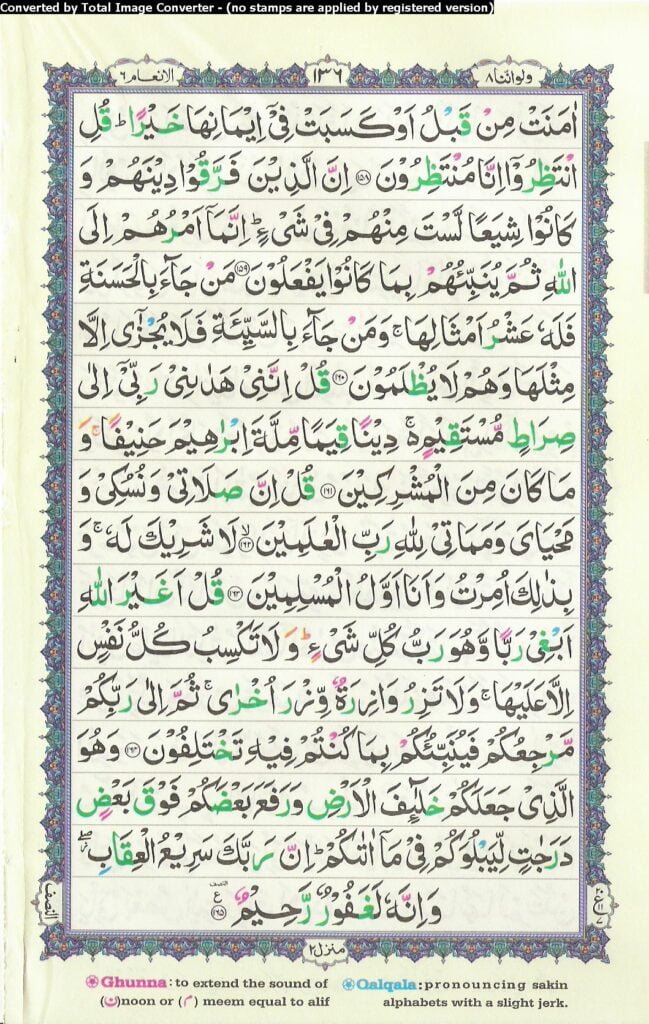 Converted by Total Image Converter - (no stamps are applied by registered version)
ولواننا ٨
١٣٦
الانعام ٦
اٰمَنَتْ مِنْ قَبْلُ اَوْ كَسَبَتْ فِيْٓ اِيْمَانِهَا خَيْرًا ؕ قُلِ
انْتَظِرُوْۤا اِنَّا مُنْتَظِرُوْنَ ﴿۱۵۸﴾ اِنَّ الَّذِيْنَ فَرَّقُوْا دِيْنَهُمْ وَ
كَانُوْا شِيَعًا لَّسْتَ مِنْهُمْ فِيْ شَيْءٍ ؕ اِنَّمَاۤ اَمْرُهُمْ اِلَى
اللّٰهِ ثُمَّ يُنَبِّئُهُمْ بِمَا كَانُوْا يَفْعَلُوْنَ ﴿۱۵۹﴾ مَنْ جَآءَ بِالْحَسَنَةِ
فَلَهٗ عَشْرُ اَمْثَالِهَا ۚ وَمَنْ جَآءَ بِالسَّيِّئَةِ فَلَا يُجْزٰۤى اِلَّا
مِثْلَهَا وَهُمْ لَا يُظْلَمُوْنَ ﴿۱۶۰﴾ قُلْ اِنَّنِيْ هَدٰىنِيْ رَبِّيْۤ اِلٰى
صِرَاطٍ مُّسْتَقِيْمٍ ۚ دِيْنًا قِيَمًا مِّلَّةَ اِبْرٰهِيْمَ حَنِيْفًا ۚ وَ
مَا كَانَ مِنَ الْمُشْرِكِيْنَ ﴿۱۶۱﴾ قُلْ اِنَّ صَلَاتِيْ وَنُسُكِيْ وَ
مَحْيَايَ وَمَمَاتِيْ لِلّٰهِ رَبِّ الْعٰلَمِيْنَ ﴿۱۶۲﴾ ۙ لَا شَرِيْكَ لَهٗ ۚ وَ
بِذٰلِكَ اُمِرْتُ وَاَنَا اَوَّلُ الْمُسْلِمِيْنَ ﴿۱۶۳﴾ قُلْ اَغَيْرَ اللّٰهِ
اَبْغِيْ رَبًّا وَّهُوَ رَبُّ كُلِّ شَيْءٍ ؕ وَلَا تَكْسِبُ كُلُّ نَفْسٍ
اِلَّا عَلَيْهَا ۚ وَلَا تَزِرُ وَازِرَةٌ وِّزْرَ اُخْرٰى ۚ ثُمَّ اِلٰى رَبِّكُمْ
مَّرْجِعُكُمْ فَيُنَبِّئُكُمْ بِمَا كُنْتُمْ فِيْهِ تَخْتَلِفُوْنَ ﴿۱۶۴﴾ وَهُوَ
الَّذِيْ جَعَلَكُمْ خَلٰٓئِفَ الْاَرْضِ وَرَفَعَ بَعْضَكُمْ فَوْقَ بَعْضٍ
دَرَجٰتٍ لِّيَبْلُوَكُمْ فِيْ مَاۤ اٰتٰىكُمْ ؕ اِنَّ رَبَّكَ سَرِيْعُ الْعِقَابِ ۖ
وَاِنَّهٗ لَغَفُوْرٌ رَّحِيْمٌ ﴿۱۶۵﴾ ع النصف
النصف
منزل ٢
Ghunna: to extend the sound of (ن) noon or (م) meem equal to alif
Qalqala: pronouncing sakin alphabets with a slight jerk.